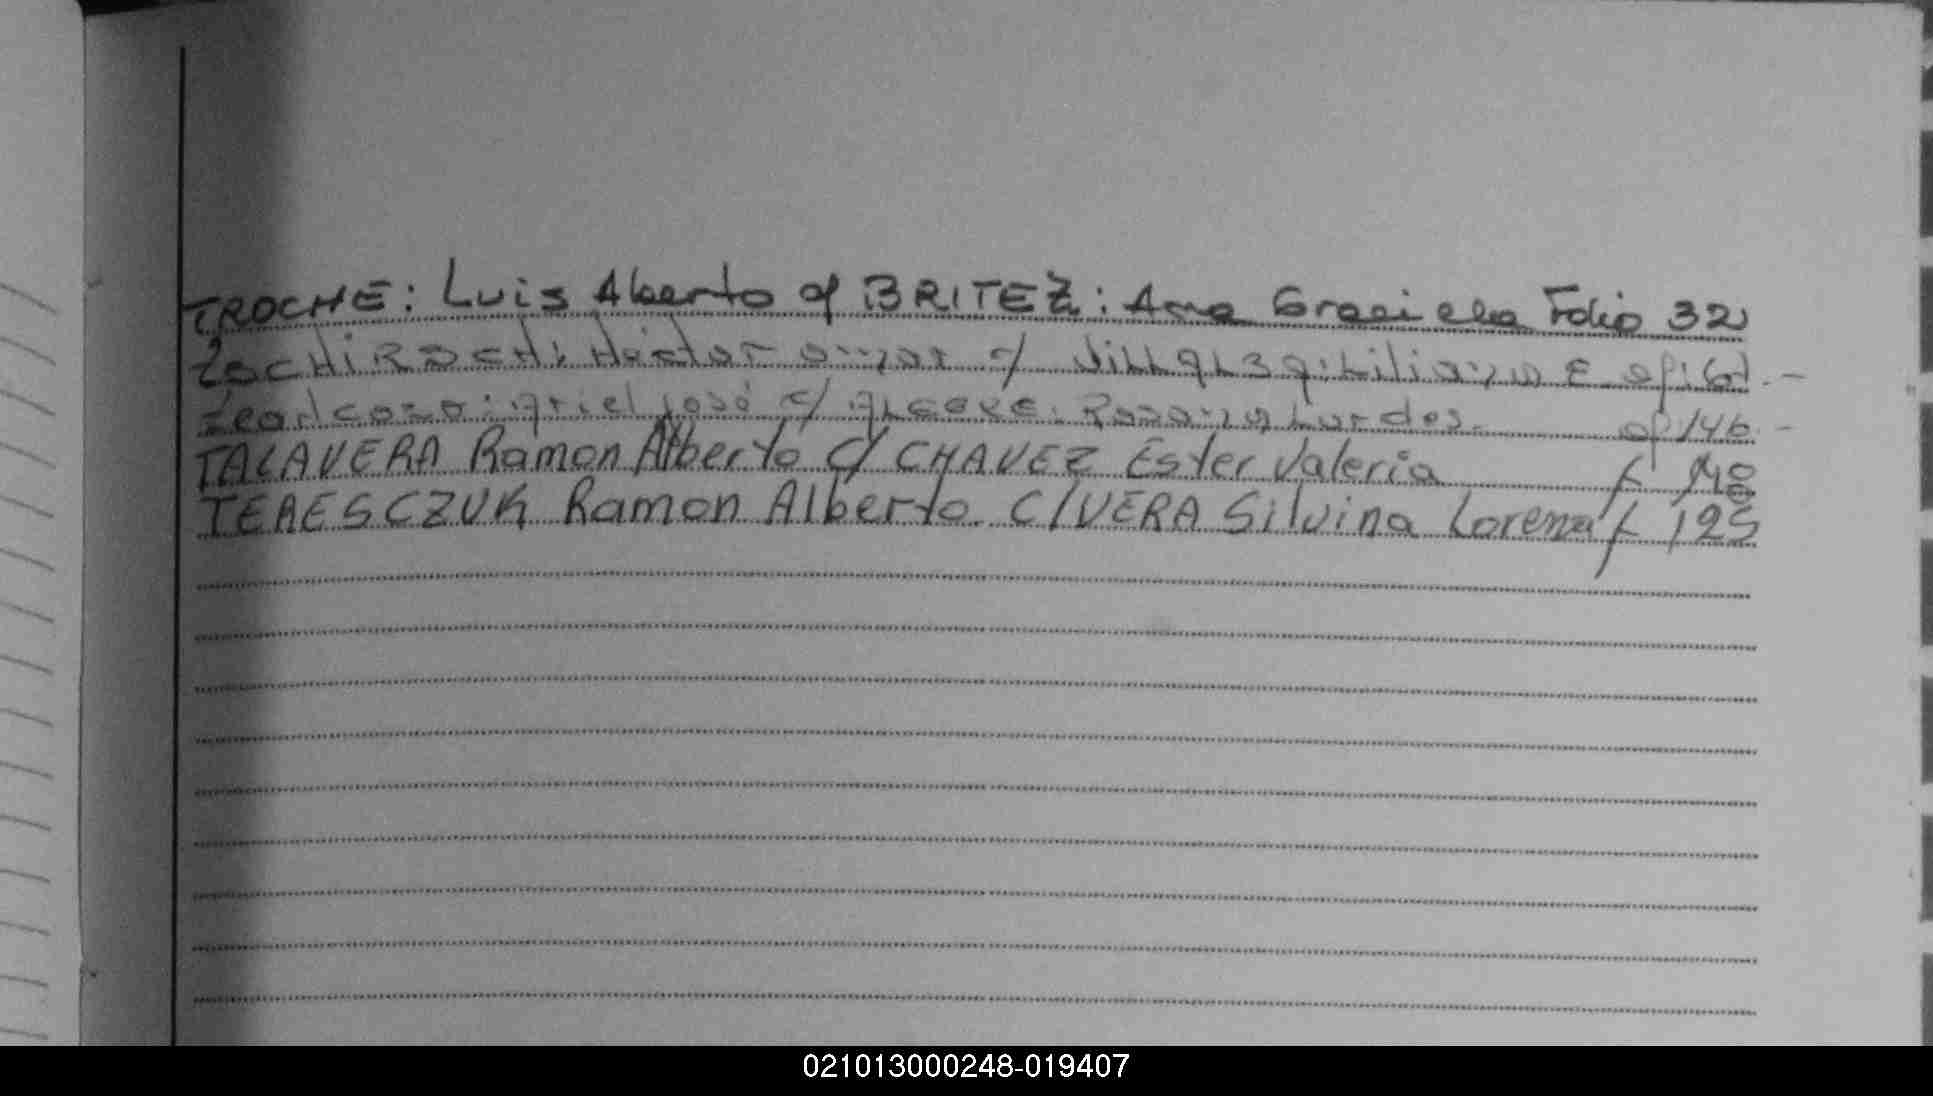 TROCHE: Luis Alberto c/ BRITEZ: Ana Graciela Folio 32
Hector Omar c/ Liliana E
Ariel José c/ Rosana Lurdes. of 146.-
TALAVERA Ramon Alberto C/ CHAVEZ Ester Valeria f
TERESCZUK Ramon Alberto. C/VERA Silvina Lorena f 125
021013000248-019407